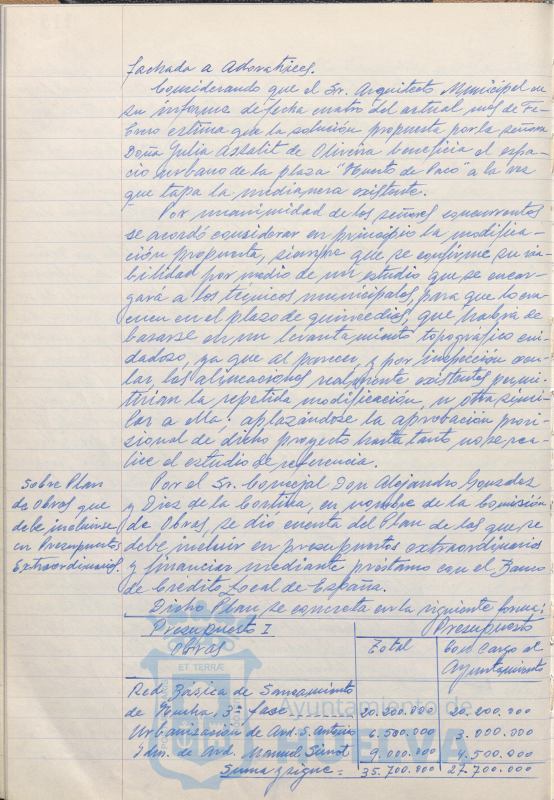 fachada a Adoratrices.
Considerando que el Sr. Arquitecto Municipal en
su informe de fecha cuatro del actual mes de Fe-
brero estima que la solución propuesta por la señora
Doña Julia Assalit de Oliveira beneficia el espa-
cio urbano de la plaza "Huerto de Paco" a la vez
que tapa la medianera existente.
Por unanimidad de los señores concurrentes
se acordó considerar en principio la modifica-
ción propuesta, siempre que se confirme su via-
bilidad por medio de un estudio que se encar-
gará a los técnicos municipales, para que lo eva-
cuen en el plazo de quince días, que habrá de
basarse en un levantamiento topográfico cui-
dadoso, ya que al parecer, y por inspección ocu-
lar, las alineaciones realmente existentes permi-
tirían la repetida modificación, u otra simi-
lar a ella, aplazándose la aprobación provi-
sional de dicho proyecto hasta tanto no se rea-
lice el estudio de referencia.
Sobre Plan
de Obras que
debe incluirse
en Presupuestos
Extraordinarios.
Por el Sr. Concejal Don Alejandro González
y Díez de la Cortina, en nombre de la Comisión
de Obras, se dió cuenta del Plan de las que se
debe incluir en presupuestos extraordinarios
y financiar mediante préstamo con el Banco
de Crédito Local de España.
Dicho Plan, se concreta en la siguiente forma:
Presupuesto I Presupuesto
Obras Total Con cargo al
Ayuntamiento
Red Básica de Saneamiento
de Huelva, 3ª fase 20.200.000 20.200.000
Urbanización de Avd. S. Antonio 6.500.000 3.000.000
Idm. de Avd. Manuel Siurot 9.000.000 4.500.000
Suma y sigue= 35.700.000 27.700.000
ET TERRÆ
Ayuntamiento de
HUELVA